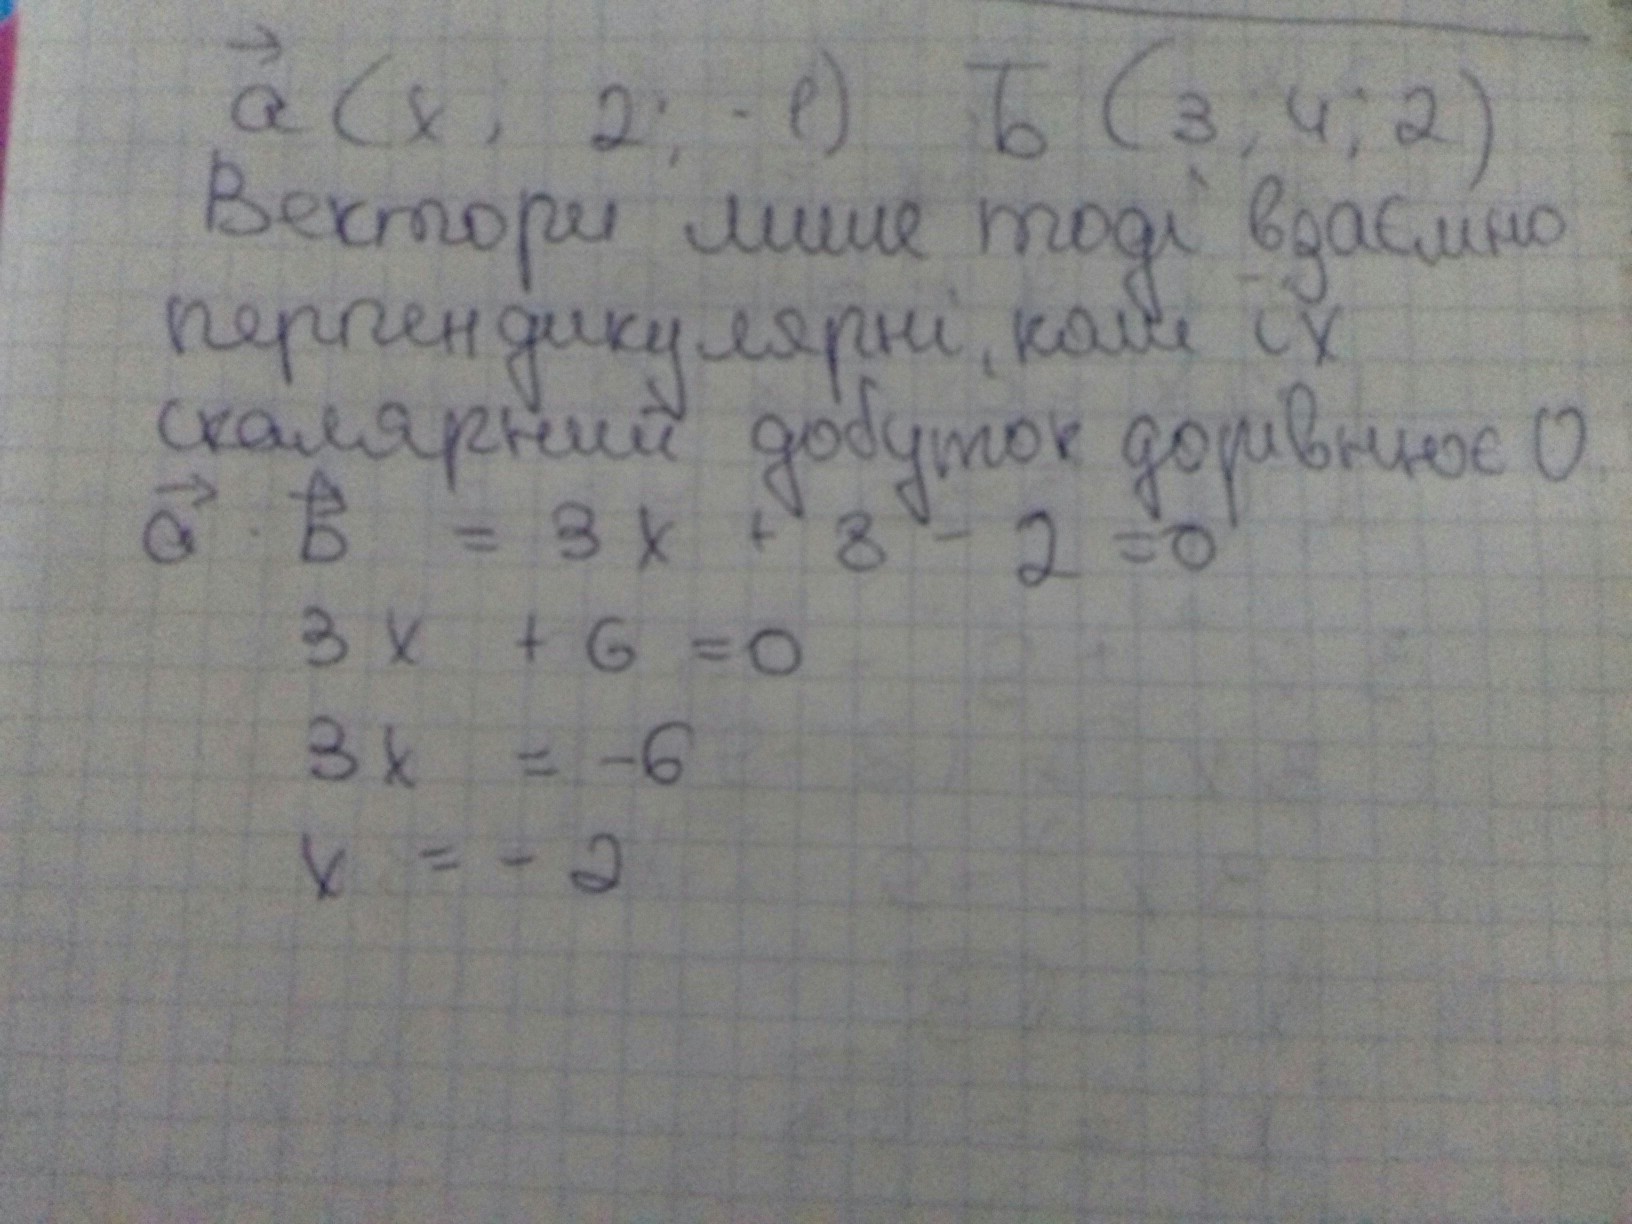 a⃗ (x; 2; -1) b̅ (3; 4; 2)
Вектори лише тоді взаємно
перпендикулярні, коли їх
скалярний добуток дорівнює 0
a⃗ · b⃗ = 3x + 8 - 2 = 0
3x + 6 = 0
3x = -6
x = -2